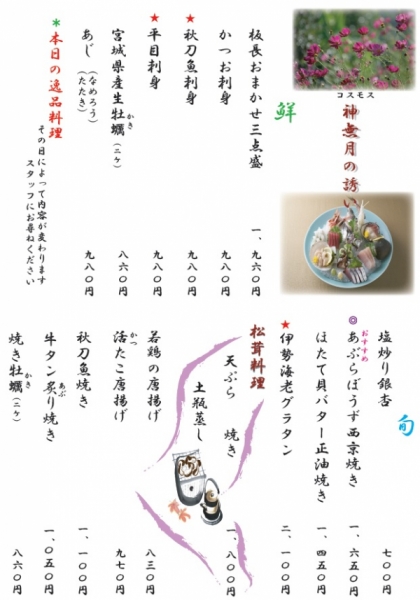 コスモス
神無月の誘い
鮮
板長おまかせ三点盛 一、九六〇円
かつお刺身 九八〇円
★秋刀魚刺身 九八〇円
★平目刺身 九八〇円
宮城県産生牡蠣(二ケ) 八六〇円
かき
あじ(なめろう)(たたき) 九八〇円
*本日の逸品料理
その日によって内容が変わります
スタッフにお尋ねください
旬
塩炒り銀杏 七〇〇円
おすすめ
◎あぶらぼうず西京焼き 一、六五〇円
ほたて貝バター正油焼き 一、四五〇円
★伊勢海老グラタン 二、一〇〇円
松茸料理
天ぷら 焼き 一、八〇〇円
土瓶蒸し
若鶏の唐揚げ 八三〇円
活たこ唐揚げ 九七〇円
かつ
秋刀魚焼き 一、一〇〇円
牛タン炙り焼き 一、〇五〇円
あぶ
焼き牡蠣(二ケ) 八六〇円
かき